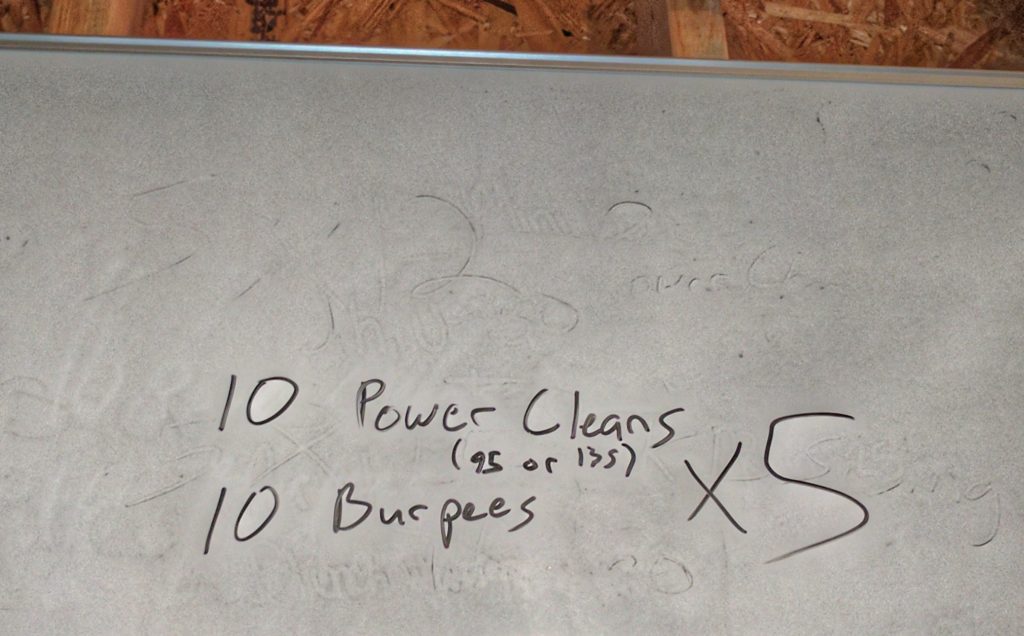 10 Power Cleans
(95 or 135)
10 Burpees
x5